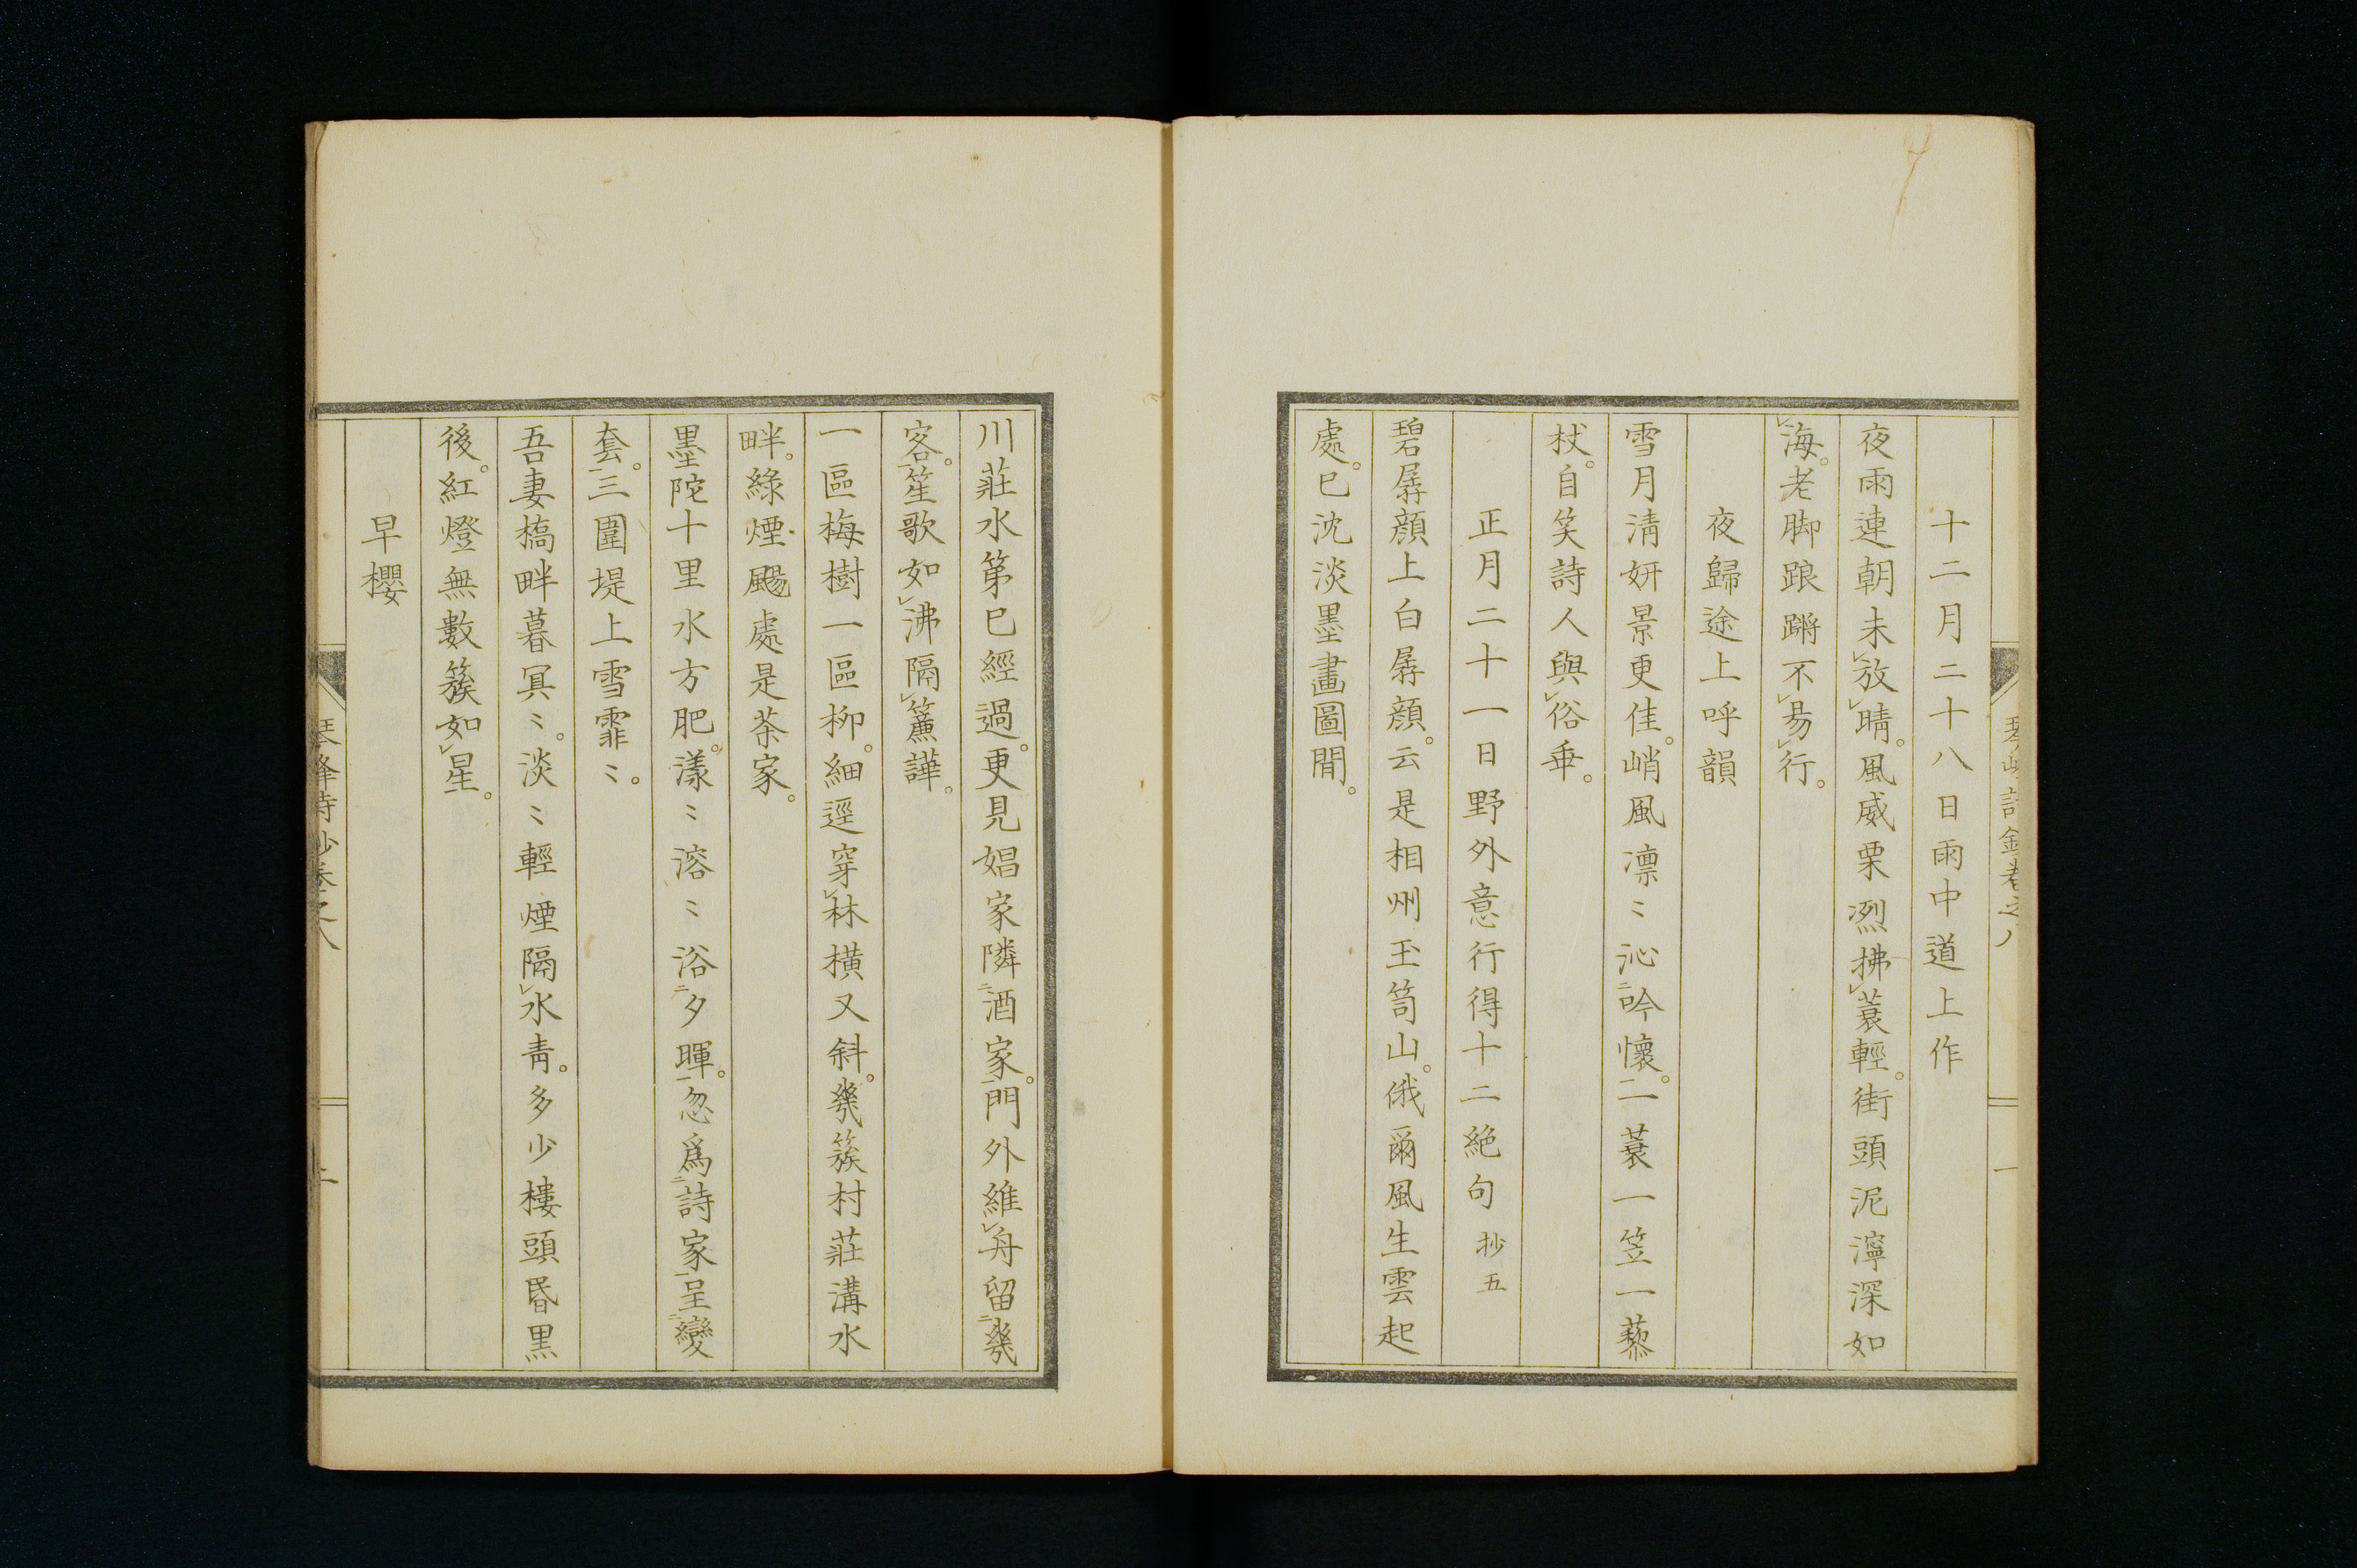 十二月二十八日雨中道上作
夜雨連朝未レ放レ晴。風威栗烈拂レ蓑輕。街頭泥濘深如
レ海。老脚踉蹡不レ易レ行。
夜歸途上呼韻
雪月淸妍景更佳。峭風凛〻沁二吟懷一。一蓑一笠一藜
杖。自笑詩人與レ俗乖。
正月二十一日野外意行得十二絶句 抄五
碧孱顔上白孱顔。云是相州玉笥山。俄爾風生雲起
處。已沈淡墨畫圖間。
川莊水第已經過。更見娼家隣二酒家一。門外維レ舟留二幾
客一。笙歌如レ沸隔レ簾譁。
一區梅樹一區柳。細逕穿レ林橫又斜。幾簇村莊溝水
畔。綠煙颺處是茶家。
墨陀十里水方肥。漾〻溶〻浴二夕暉一。忽爲二詩家一呈二變
套一。三圍堤上雪霏〻。
吾妻橋畔暮冥〻。淡〻輕煙隔レ水靑。多少樓頭昏黑
後。紅燈無數簇如レ星。
早櫻
琴峰詩鈔卷之八